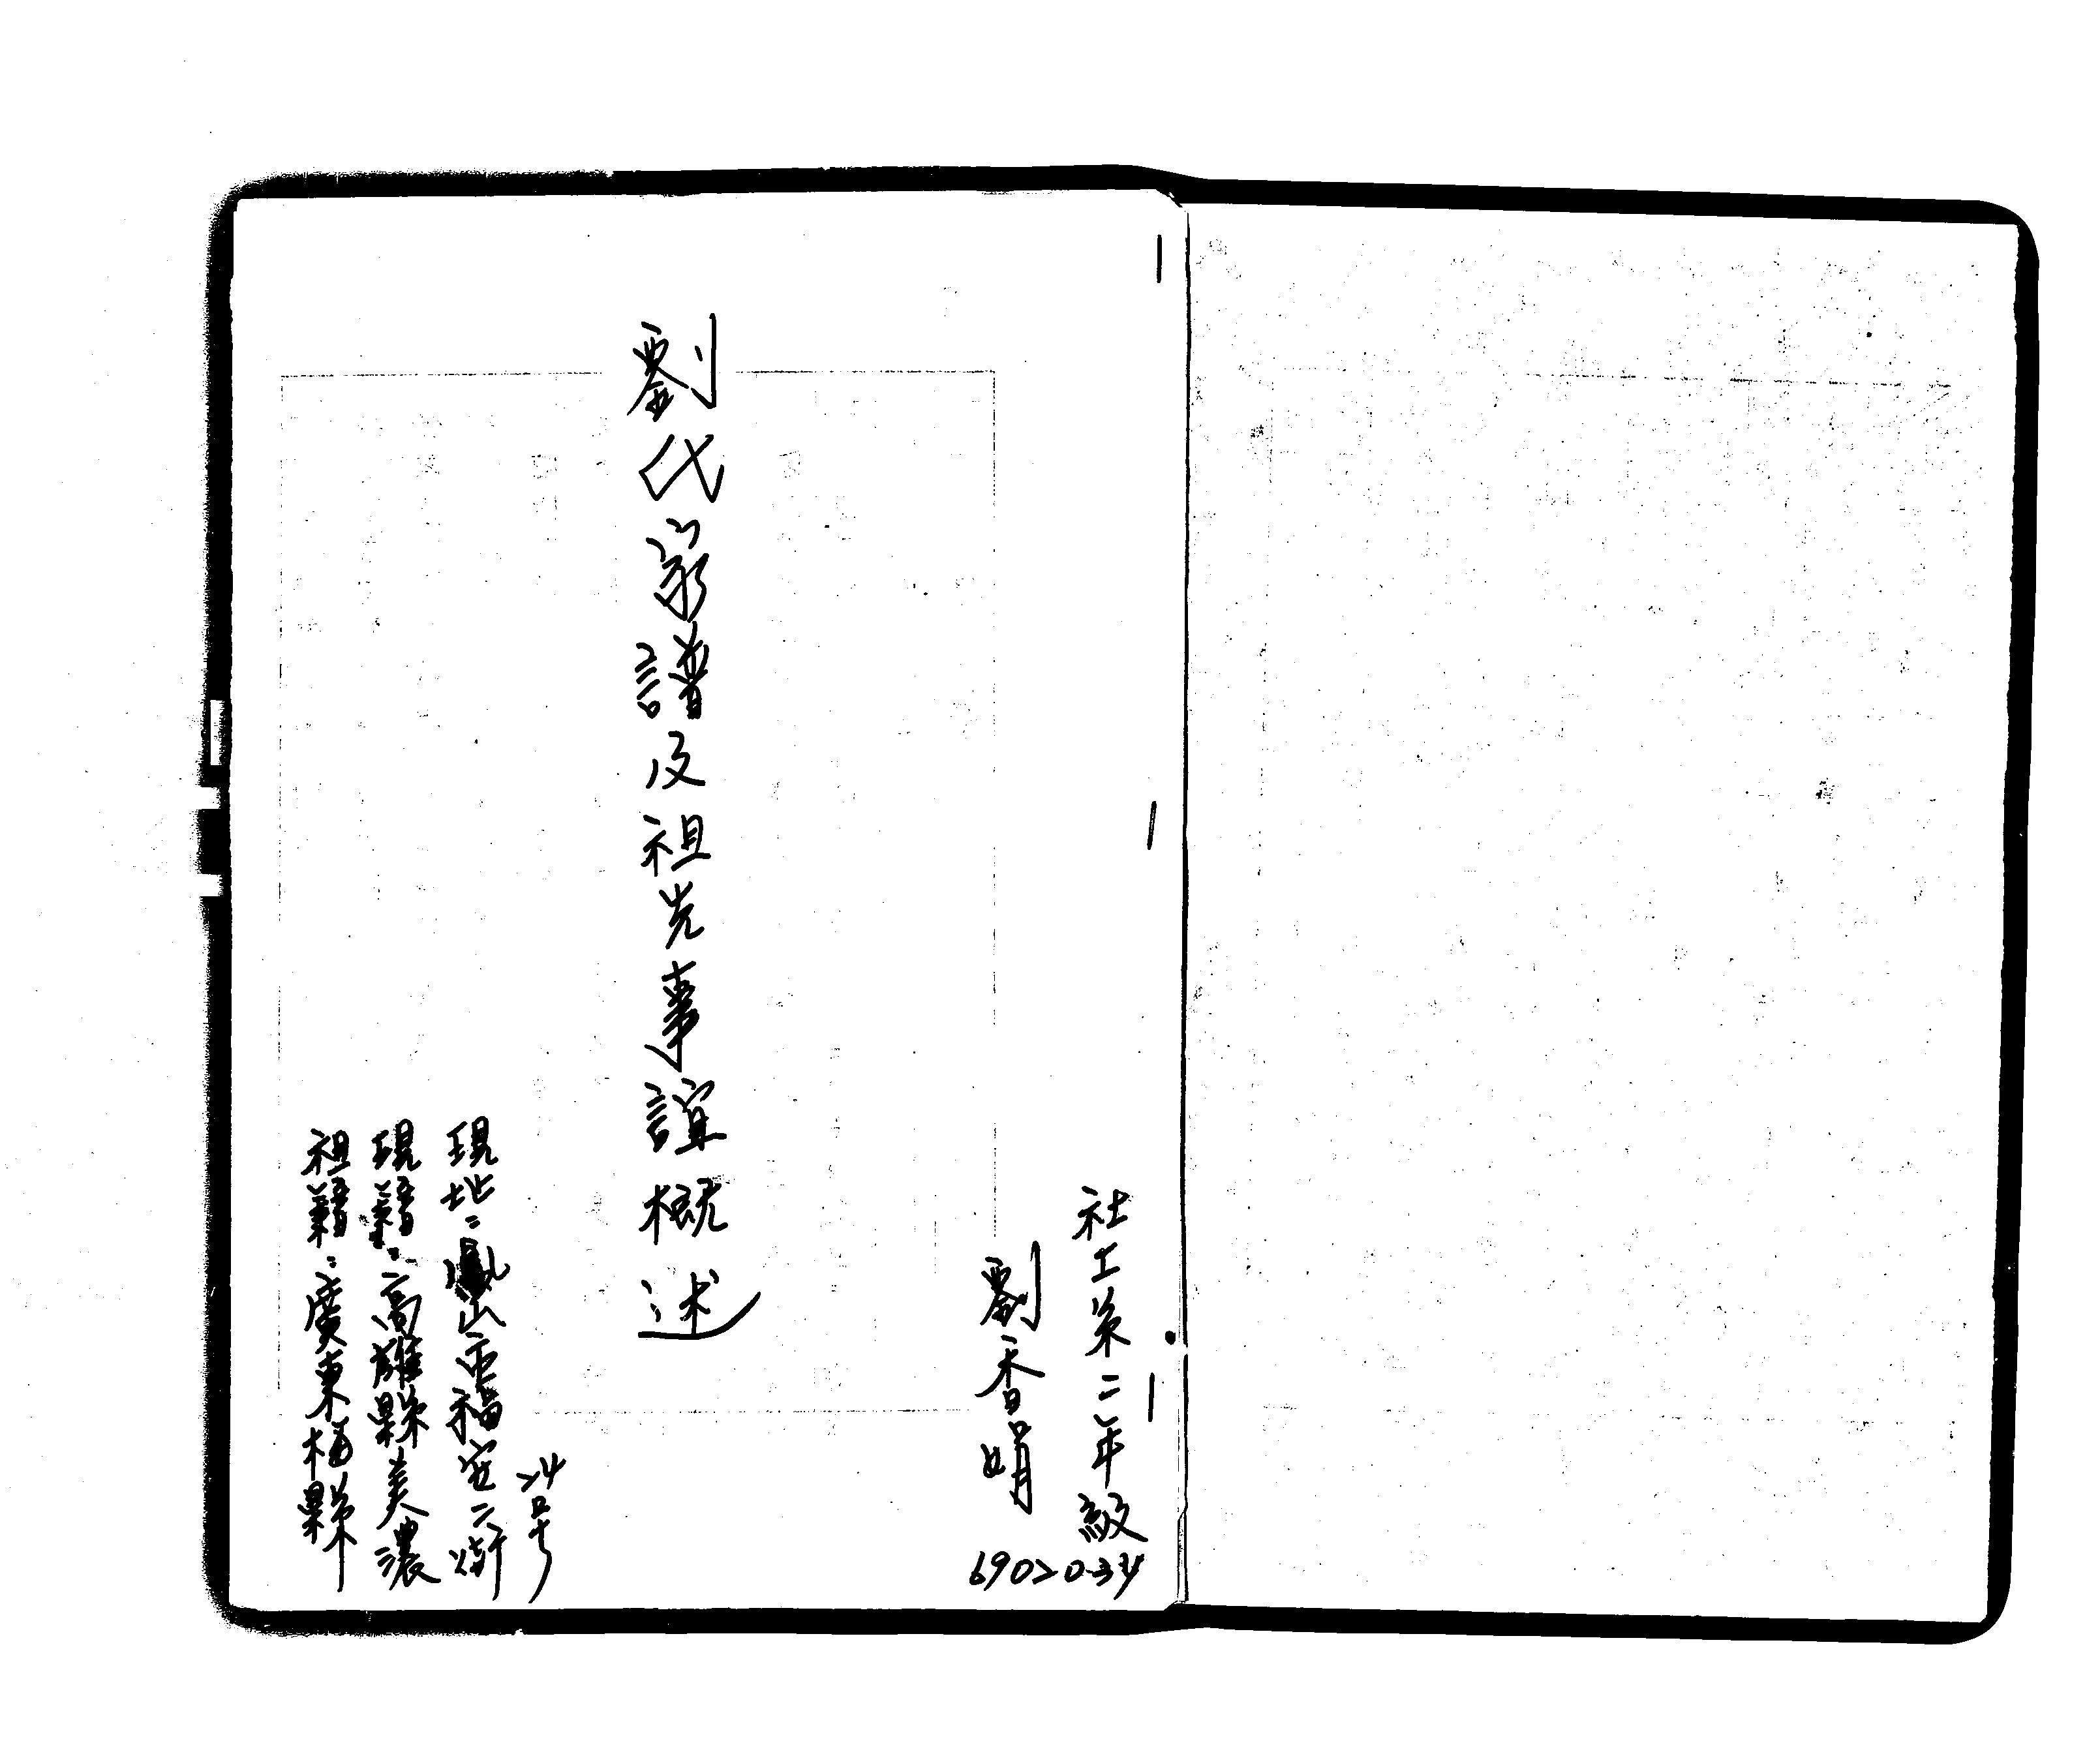 社工系二年級
劉香娟
6902034
劉代家譜及祖先事誼概述
現址：鳳山市福安二街
24号
現籍：高雄縣美濃
祖籍：廣東梅縣